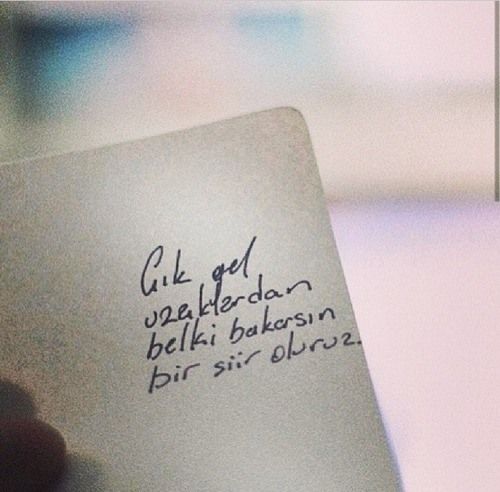 Çık gel
uzaklardan
belki bakarsın
bir şiir oluruz.